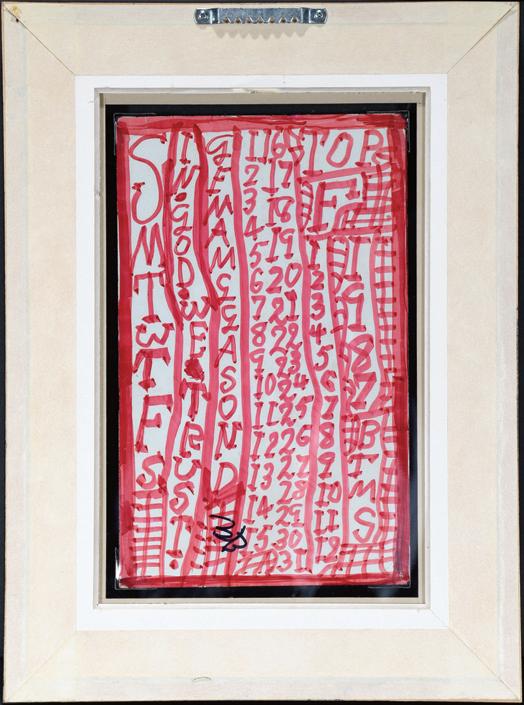 SMTWTFS
IN.GOD.WE.TRUST.
JFMAMJJASOND
1 2 3 4 5 6 7 8 9 10 11 12 13 14 15
16 17 18 19 20 21 22 23 24 25 26 27 28 29 30 31
STOP
1 2 3 4 5 6 7 8 9 10 11 12
BIMS